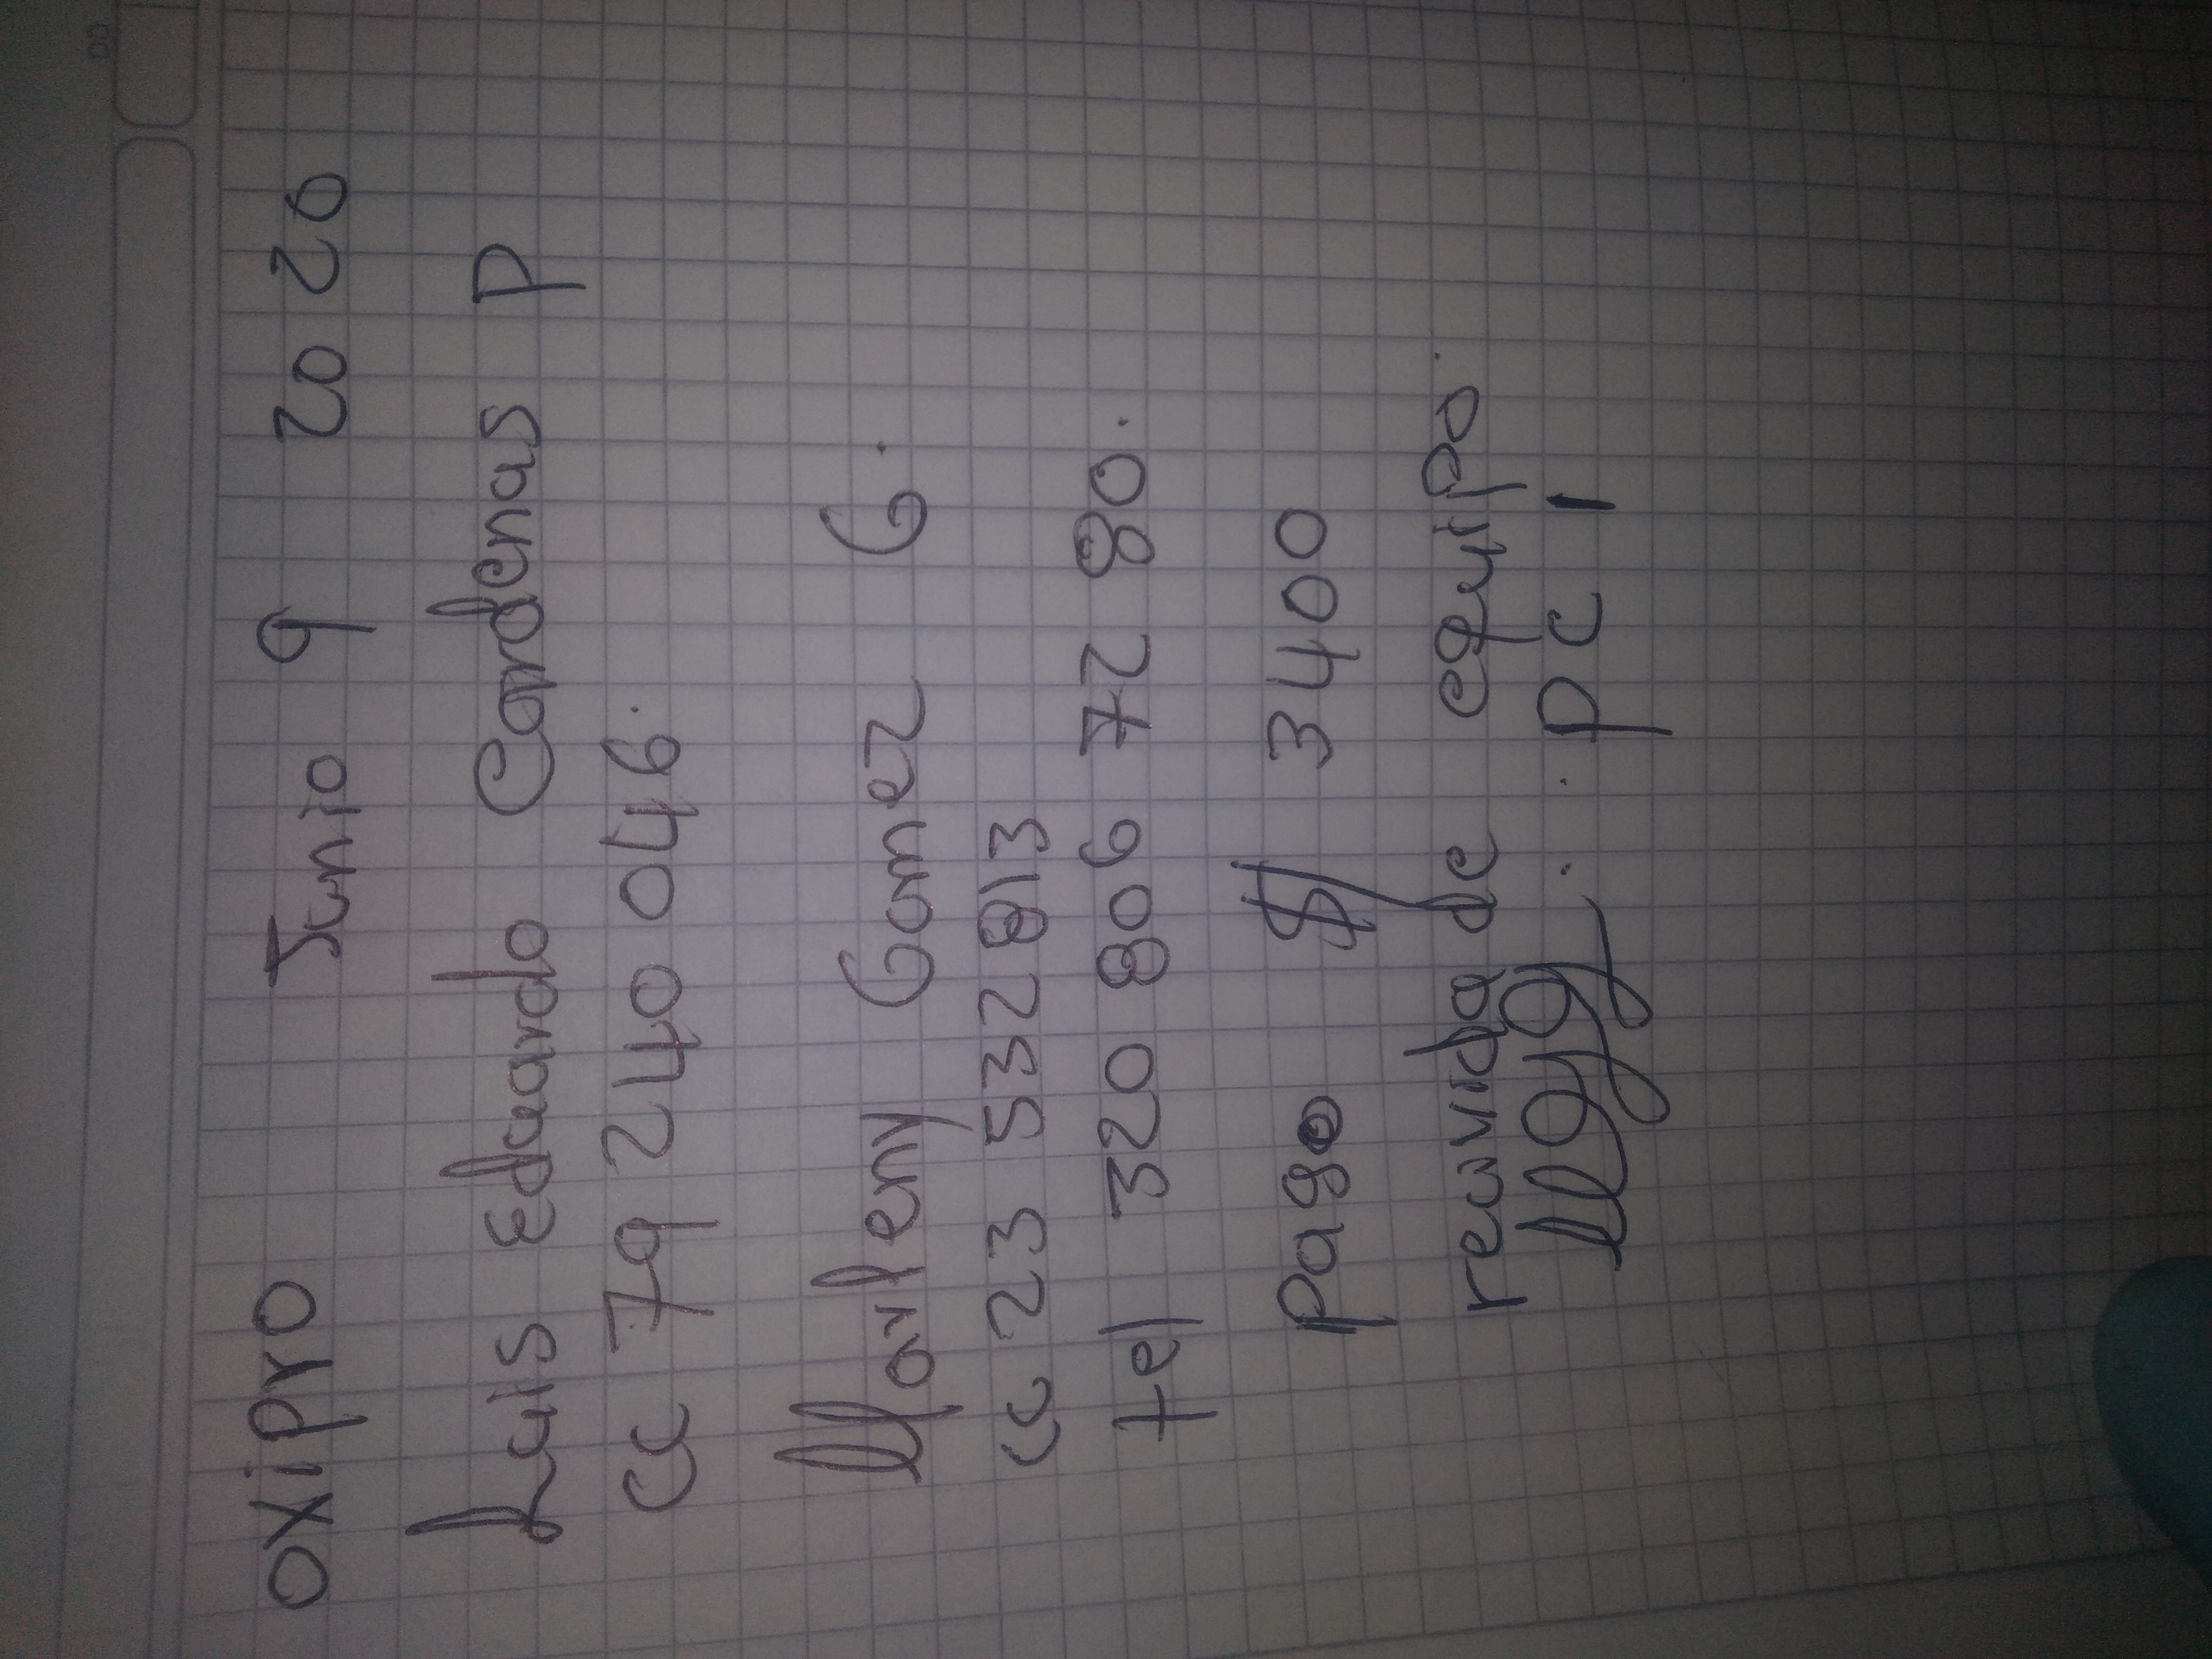 oxipro Junio 9 20 20
Luis Eduardo Cardenas P
CC 79 240 046.
Marleny Gomez G.
CC 23 532 813
tel 320 806 72 80.
pago $ 3400
recivida de equipo.
PC 1